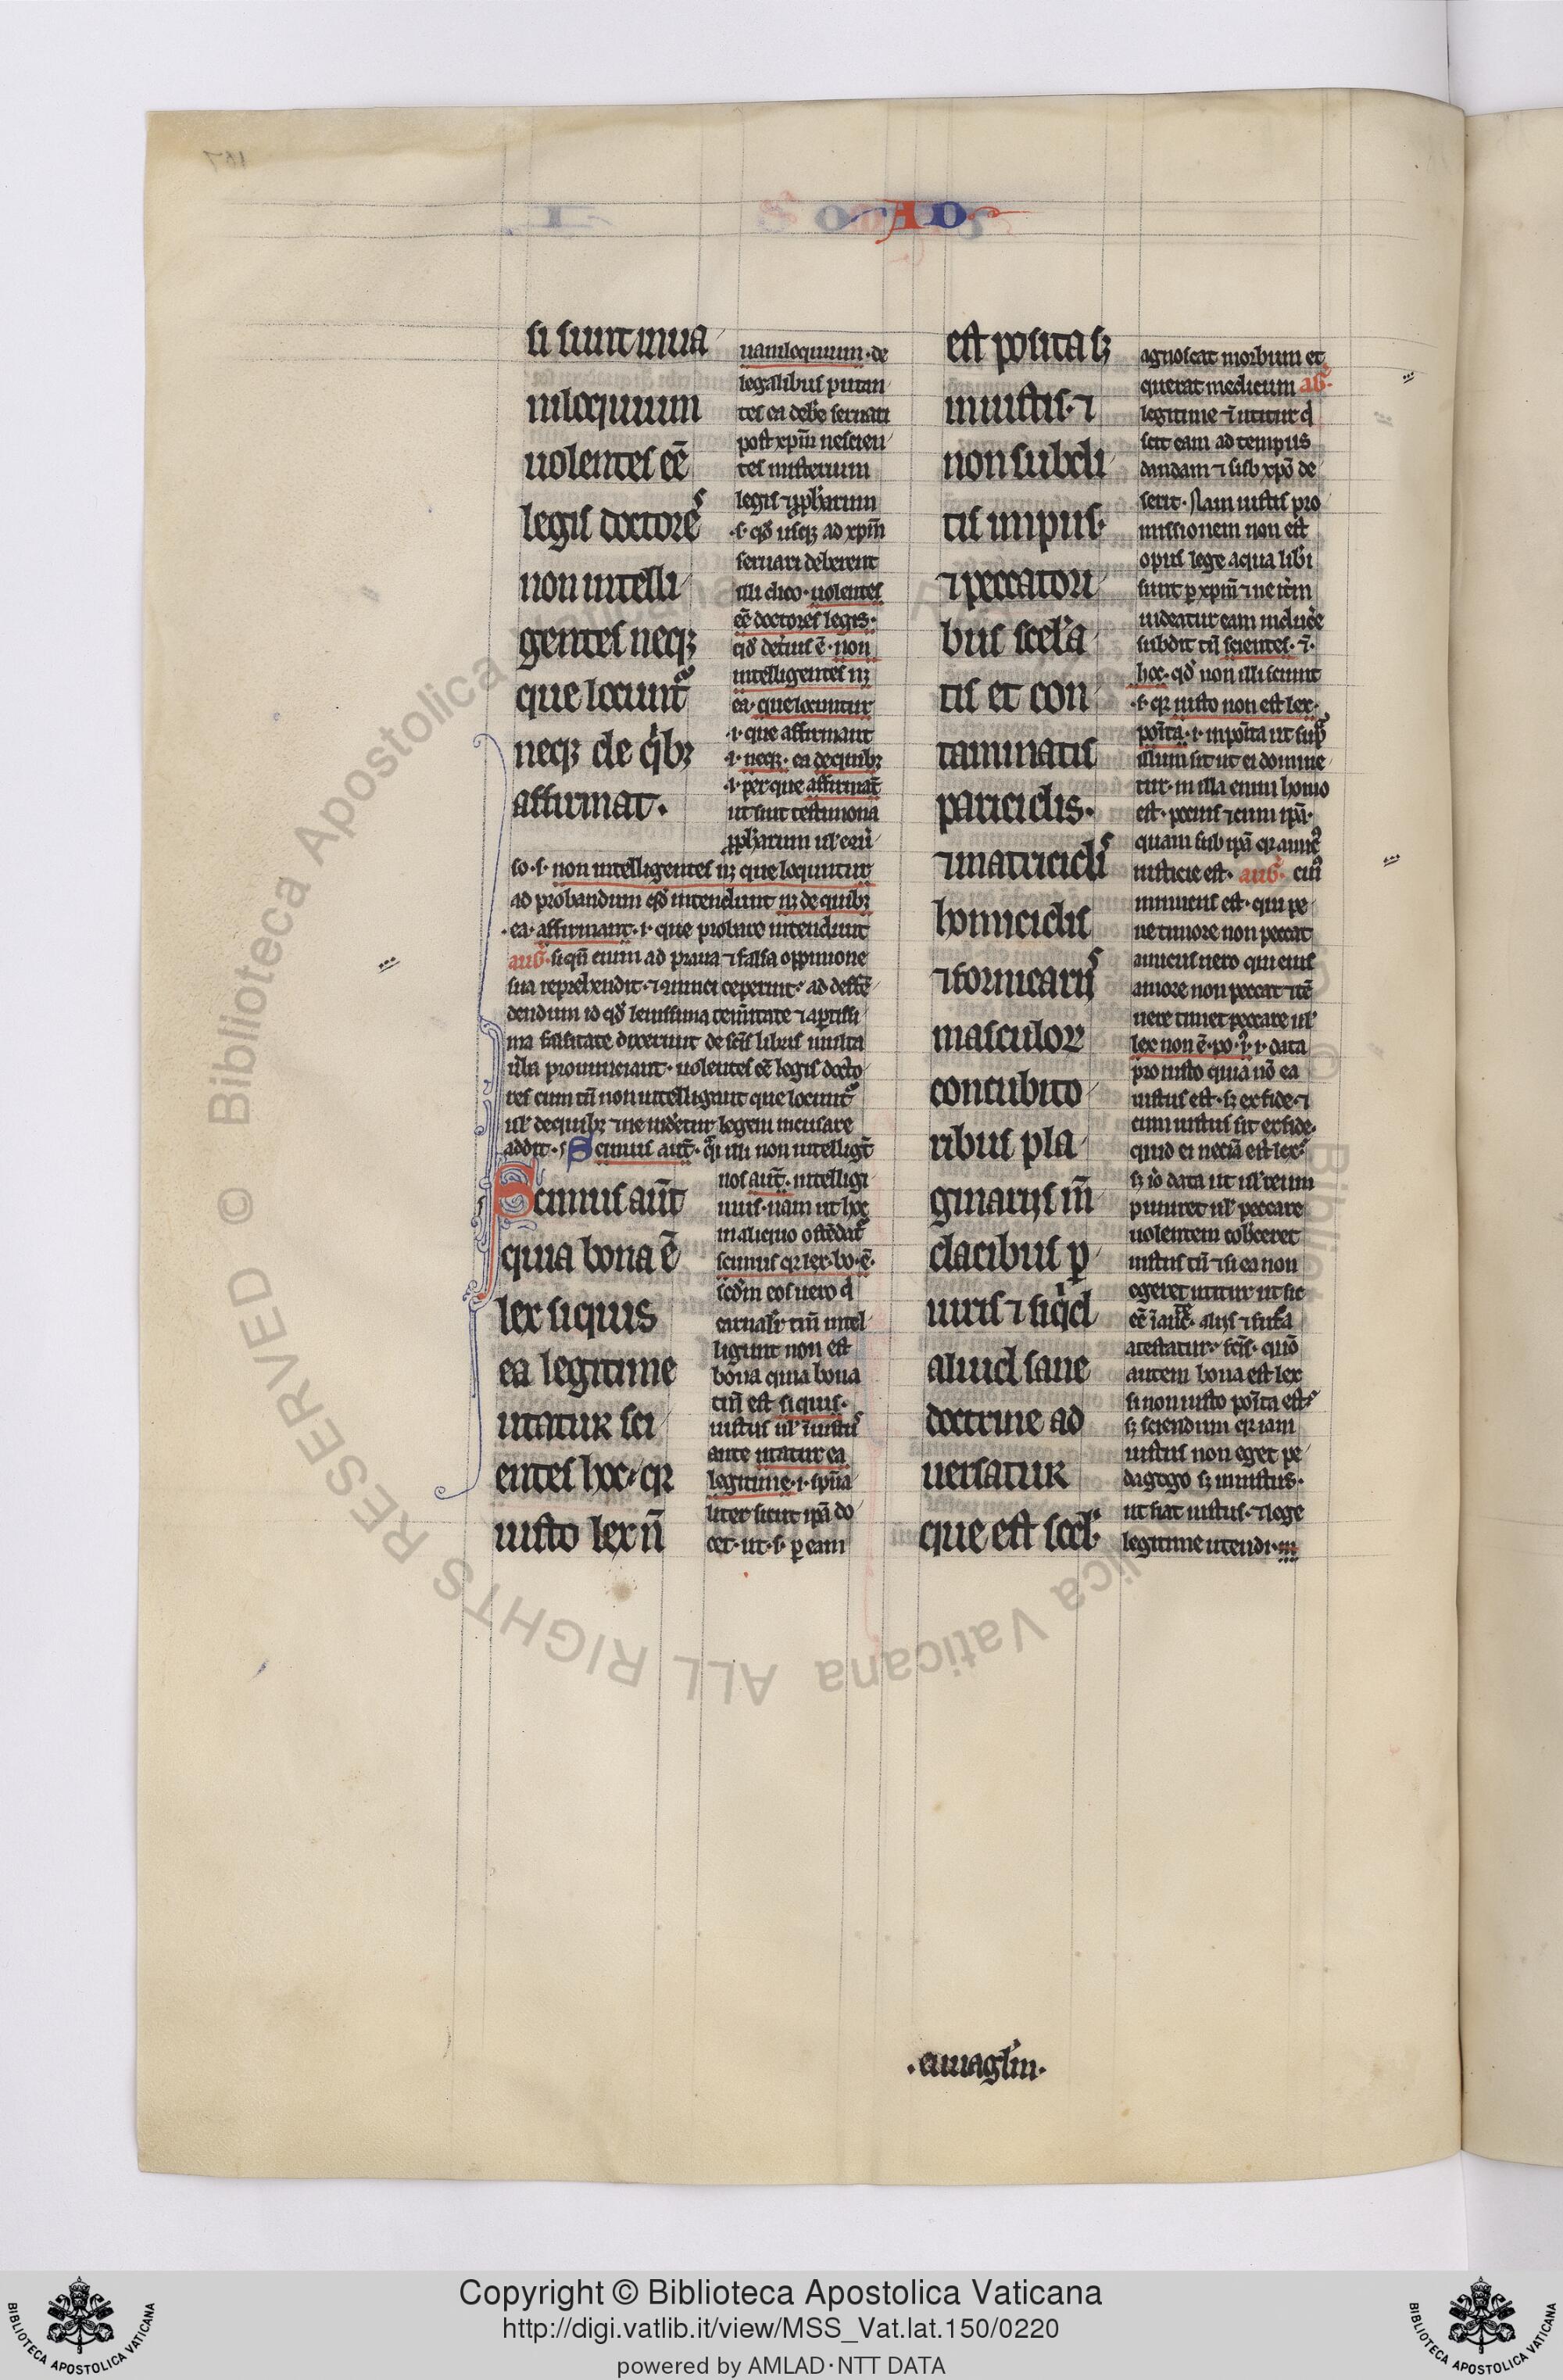 AD
si sunt inua
niloquium
uolentes eē
legis doctores
non intelli
gentes neqꝫ
que locunt᷑
neqꝫ de qͥbꝫ
affirmāt.
uaniloquium· de
legalibus putan
tes ea debe᷑ seruari
post xp̄m nescien
tes misterium
legis ⁊ ꝓph̄arum
·s· qd̄ usqꝫ ad xp̄m
seruari deberent
illi dico· uolentes
eē doctores legis·
qd̄ deterius ē· non
intelligentes nꝫ
ea· que locuntur
·i· que affirmant
·i· neqꝫ· ea de quibꝫ
·i· per que affirmāt
ut sunt testimonia
ꝓph̄arum ul᷑ eorū
so· s· non intelligentes nꝫ que loquuntur
ad probandum qd̄ intendunt nꝫ de quibꝫ
·ea· affirmant· i· que probare intendunt
auḡ· si qn̄ enim ad praua ⁊ falsa oppinione
sua reprehendi· ⁊ uinci ceperint· ad deffē
dendum id qd̄ leuissima temeritate ⁊ aꝑtissi
ma falsitate dixerunt de scīs libris multa
uerba pronunciant· uolentes eē legis docto
res cum tn̄ non intelligant que locunt᷑
ul᷑ de quibꝫ ⁊ ne uidetur legem incusare
addit· s Scimus aut̄· q̄si illi non intelligūt
Scimus aūt
quia bona ē
lex si quis
ea legitime
utatur sci
entes hoc· qꝛ
iusto lex n̄
nos aut̄· intelligi
mus· nam ut hoc
in aliquo ostēdat᷑
scimus qꝛ lex· bo· ē·
scd̄m eos uero q̄
carnalr̄ tm̄ intel
ligunt non est
bona quia bona
tm̄ est si quis·
iustus ul᷑ īiustus
ante utatur ea
legitime· i· spūa
liter sicut ipā do
cet· ut· s· ꝑ eam
est posita sꝫ
iniustis· ⁊
non subdi
tis impiis·
⁊ peccatori
bus scelera
tis et con
taminatis
paricidis·
⁊ matricidis
homicidis
⁊ fornicariis
masculoꝝ
concubito
ribus pla
giariis m̄
dacibus ꝑ
iuris ⁊ siqͥd
aliud sane
doctrine ad
uersatur
que est scd̄·
agnoscat morbum et
querat medicum aḡ·
legitime ēi utitur q̄
scit eam ad tempus
dandam ⁊ sub xp̄o de
serit· Nam iustis pro
missionem non est
opus lege a qua liberi
sunt ꝑ xp̄m ⁊ ne item
uideatur eam inducere
subdit tn̄ scientes· ⁊·
hoc· qd̄ non illi sciunt
·s· qꝛ iusto non est lex·
poīta· i· inpoīta ut supra
illum sit ut ei domine
tur· in illa enim homo
est· pocius ⁊ cum ipā·
quam sub ipā qꝛ amicus
iusticie est· auḡ· cuius
inimicus est· qui pe
ne timore non peccat
amicus uero qui eius
amore non peccat ⁊ tē
uere timet peccare ul᷑
lex non ē· po· i· i· data
pro iusto quia nō ea
iustus est· sꝫ ex fide· ⁊
cum iustus sit ex fide·
quid ei neccīa est lex·
sꝫ iō data ut ul᷑ reum
puniret ul᷑ peccare
uolentem coherceret
iustus tn̄ ⁊ si ea non
egeret utitur ut sic
autem bona est lex
si non iusto poīta est·
sꝫ sciendum qꝛ iam
iustus non eget pe
dagogo sꝫ iniustus·
ut fiat iustus· ⁊ lege
legitime utendi· m̄
·euuagl̄m·
Copyright © Biblioteca Apostolica Vaticana
http://digi.vatlib.it/view/MSS_Vat.lat.150/0220
powered by AMLAD·NTT DATA